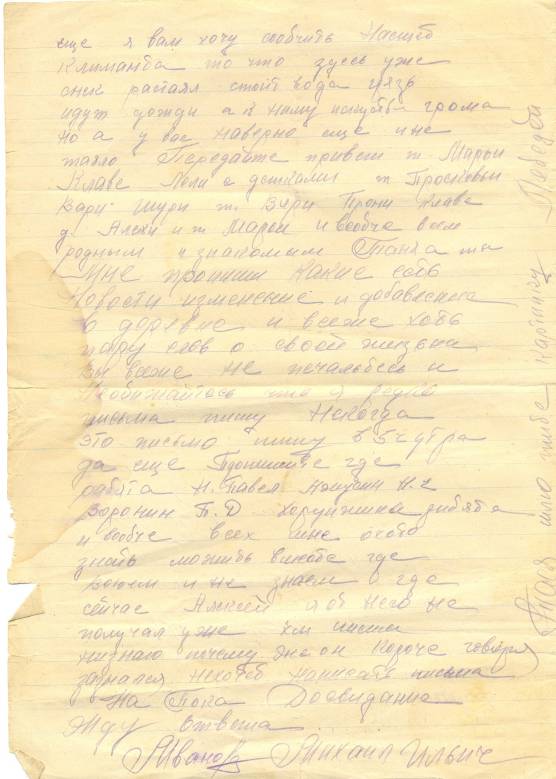 еще я вам хочу сообчить насчет
Климанта то что здесь уже
снег растаял стоит вода грязь
идут дожди а к тому искуства грома
но а у вас наверно еще и не
таяло Передайте привет т. Марои
Клаве Лели с детками т Просковьи
Вари Шури т. Вари Прони Клаве
д. Алски и т Марои и вообче всем
родным и знакомым Танка ты
мне пропиши какие есть
новости изменение и добавление
в деревне и все же хоть
пару слов о своей жизьни
вы все же не печальтесь и
необижайтесь что я редко
письма пишу Некогда
это письмо пишу в 5 ч утра
да еще Пропишите где
рабята Н. Павел
Воронин П. Д рибята
и вообче всех мне охото
знать можить вместе где
воюем и не знаем о где
сейчас Алксей я об него не
получал уже 4м писма
низнаю почему же он короче говоря
зазнался нехочет написать письма
На Пока Досвидание
Жду ответа
Иванов Михаил Ильич
Тися шлю тибе картинку Победы